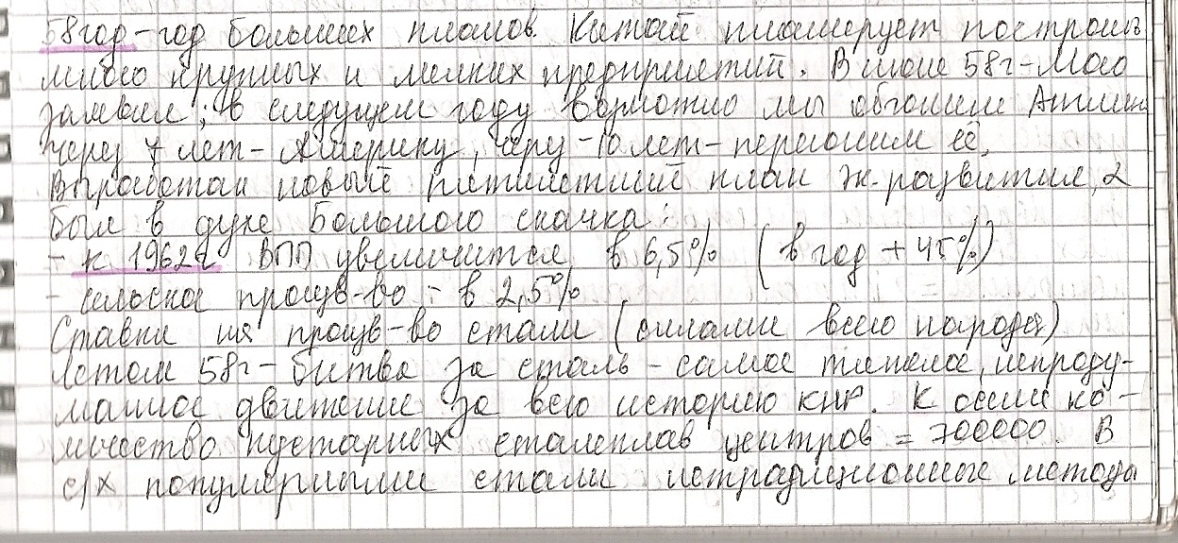 58 год - год больших планов. Китай планирует построить
много крупных и мелких предприятий. В июне 58г - Мао
заявил; в следущем году возможно мы обгоним Англию
через 7 лет - Америку, через - 10 лет - перегоним её.
Выработан новый пятилетний план эк. развития,
был в духе большого скачка:
- к 1962г ВПП увеличится в 6,5% (в год + 45%)
- сельское произв-во - в 2,5%
Ставки на произв-во стали (силами всего народа)
Летом 58г - битва за сталь - самое тяжелое, непроду-
манное движение за всю историю КНР. К осени ко-
личество кустарных сталеплав центров = 700000. В
с/х популярными стали нетрадиционные методы